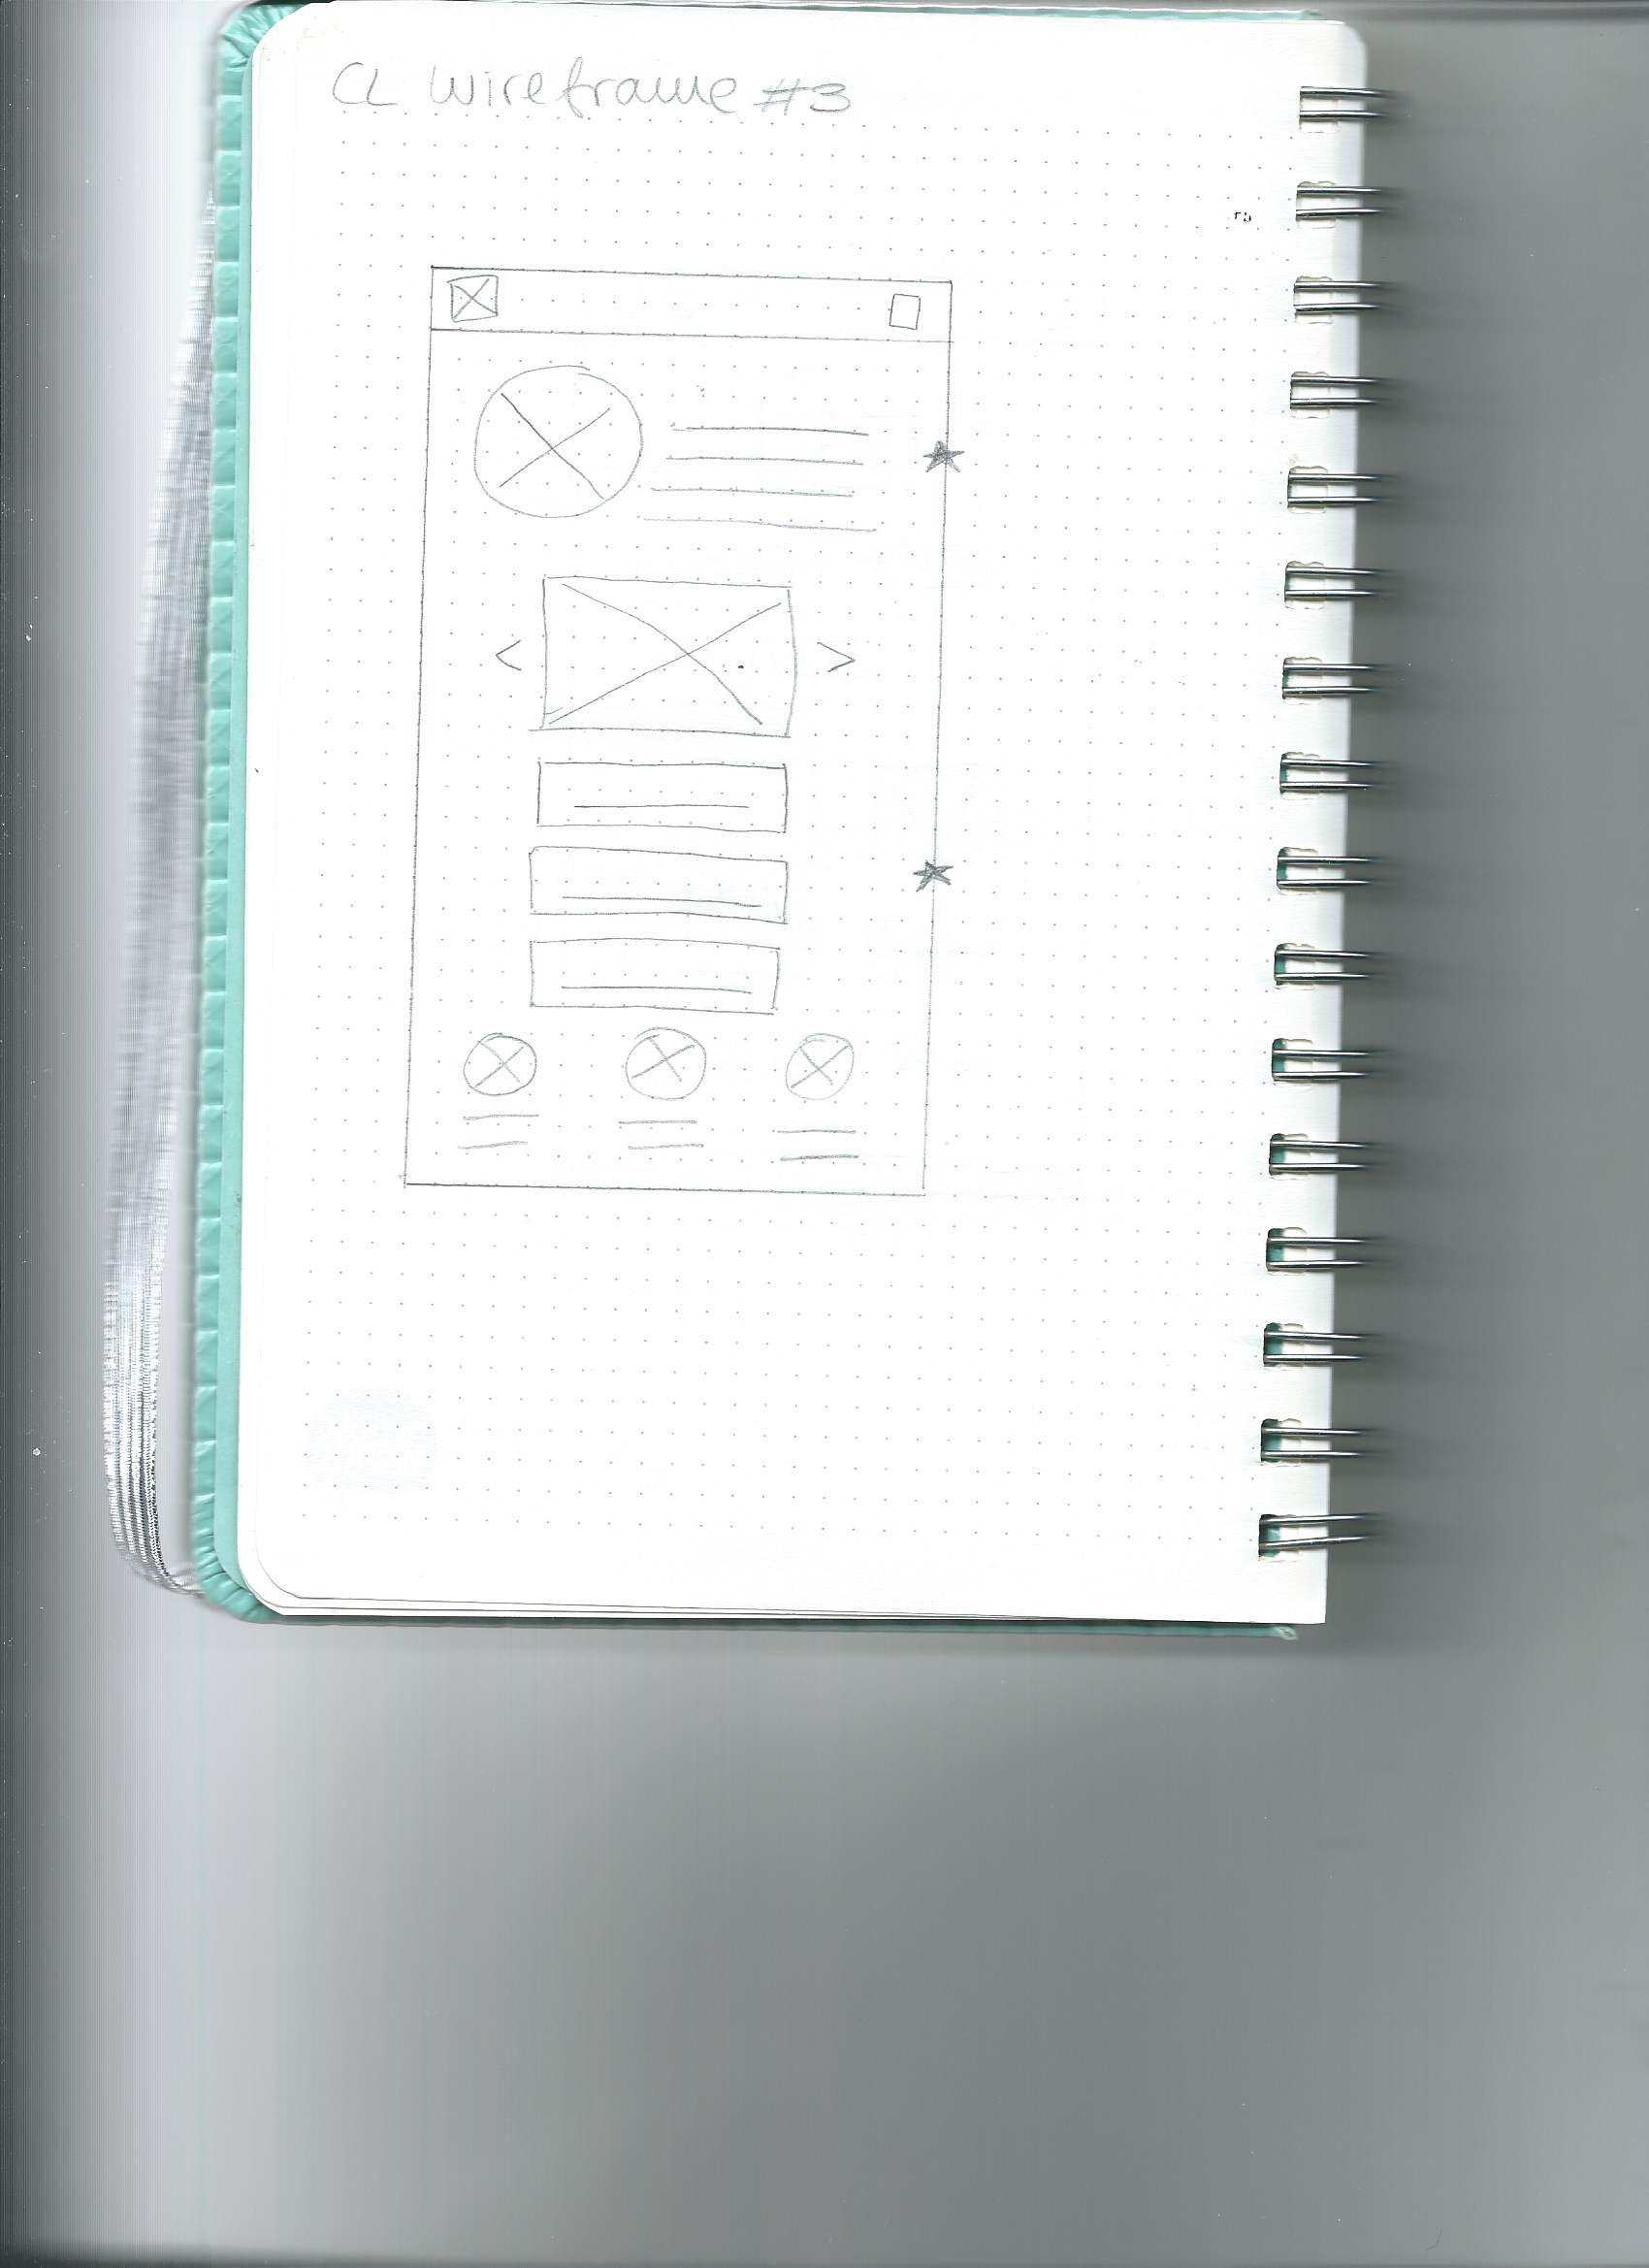 CL Wireframe #3